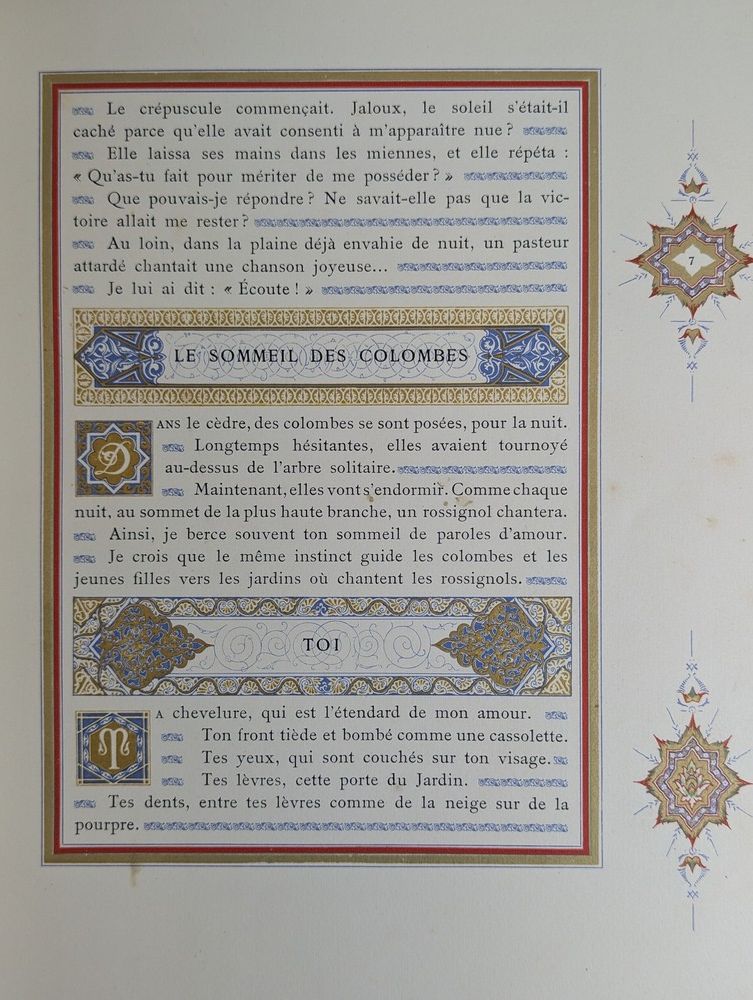 Le crépuscule commençait. Jaloux, le soleil s'était-il
caché parce qu'elle avait consenti à m'apparaître nue ?
Elle laissa ses mains dans les miennes, et elle répéta :
« Qu'as-tu fait pour mériter de me posséder ? »
Que pouvais-je répondre ? Ne savait-elle pas que la vic-
toire allait me rester ?
Au loin, dans la plaine déjà envahie de nuit, un pasteur
attardé chantait une chanson joyeuse...
Je lui ai dit : « Écoute ! »
7
LE SOMMEIL DES COLOMBES
DANS le cèdre, des colombes se sont posées, pour la nuit.
Longtemps hésitantes, elles avaient tournoyé
au-dessus de l'arbre solitaire.
Maintenant, elles vont s'endormir. Comme chaque
nuit, au sommet de la plus haute branche, un rossignol chantera.
Ainsi, je berce souvent ton sommeil de paroles d'amour.
Je crois que le même instinct guide les colombes et les
jeunes filles vers les jardins où chantent les rossignols.
TOI
TA chevelure, qui est l'étendard de mon amour.
Ton front tiède et bombé comme une cassolette.
Tes yeux, qui sont couchés sur ton visage.
Tes lèvres, cette porte du Jardin.
Tes dents, entre tes lèvres comme de la neige sur de la
pourpre.